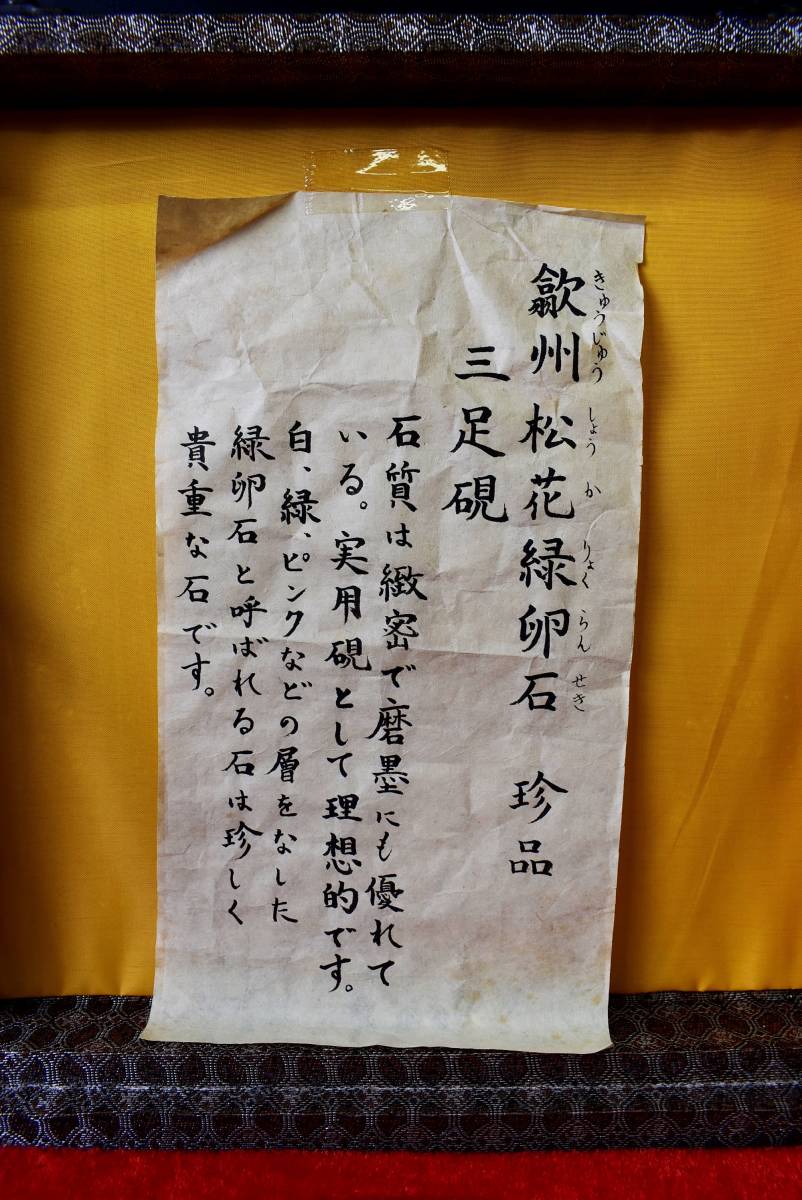 歙州松花緑卵石 珍品
きゅうじゅう しょう か りょく らん せき
三足硯
石質は緻密で磨墨にも優れて
いる。実用硯として理想的です。
白、緑、ピンクなどの層をなした
緑卵石と呼ばれる石は珍しく
貴重な石です。